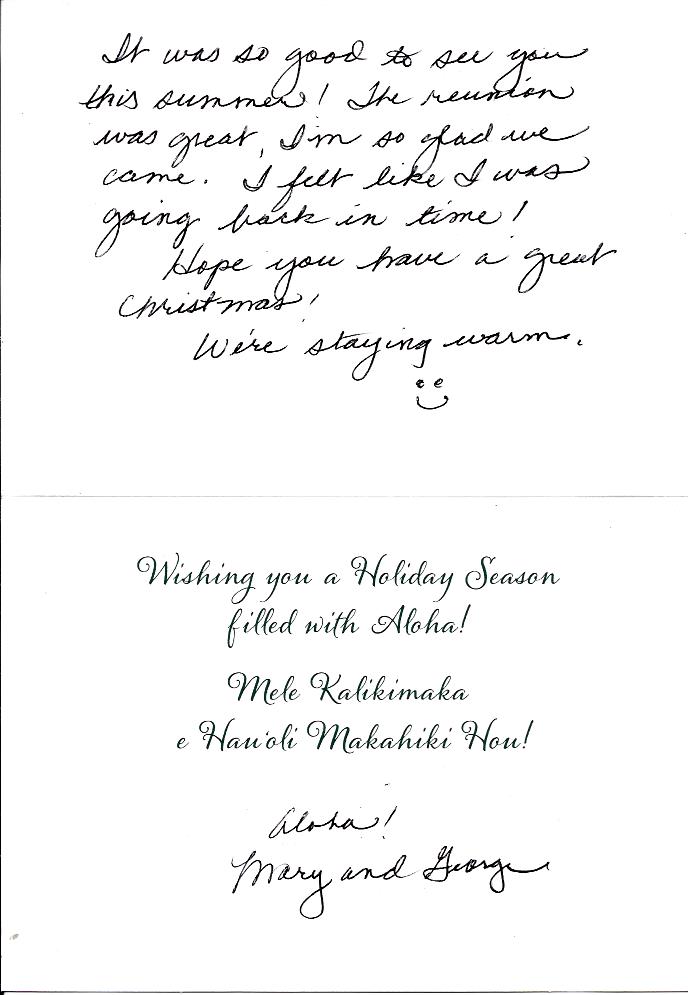 It was so good to see you
this summer! The reunion
was great, I'm so glad we
came. I felt like I was
going back in time!
Hope you have a great
Christmas!
We're staying warm.
Wishing you a Holiday Season
filled with Aloha!
Mele Kalikimaka
e Hau'oli Makahiki Hou!
Aloha!
Mary and George